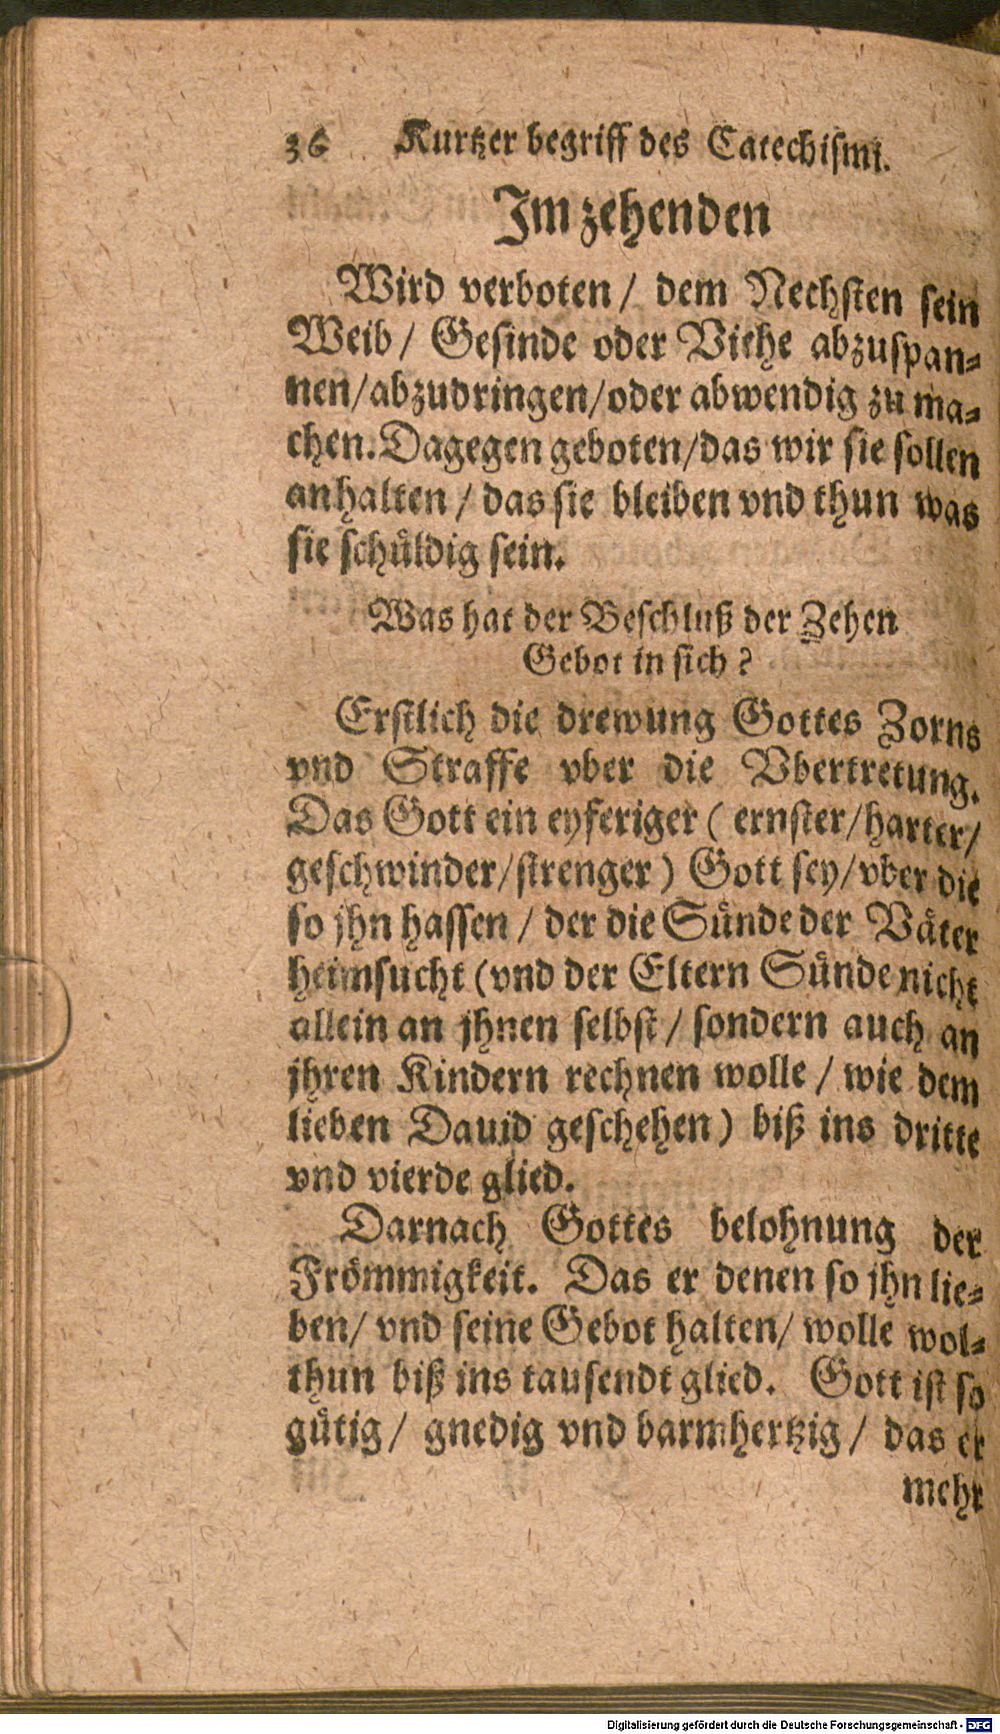 36 Kurtzer begriff des Catechismi.
Im zehenden
Wird verboten / dem Nechsten sein
Weib / Gesinde oder Viehe abzuspan⸗
nen/abzudringen/oder abwendig zu ma⸗
chen. Dagegen geboten/das wir sie sollen
anhalten / das sie bleiben vnd thun was
sie schuͤldig sein.
Was hat der Beschluß der Zehen
Gebot in sich?
Erstlich die drewung Gottes Zorns
vnd Straffe vber die Vbertretung.
Das Gott ein eyferiger ( ernster/harter/
geschwinder/strenger ) Gott sey/vber die
so jhn hassen / der die Suͤnde der Vaͤter
heimsucht (vnd der Eltern Suͤnde nicht
allein an jhnen selbst / sondern auch an
jhren Kindern rechnen wolle / wie dem
lieben Dauid geschehen) biß ins dritte
vnd vierde glied.
Darnach Gottes belohnung der
Froͤmmigkeit. Das er denen so jhn lie⸗
ben/ vnd seine Gebot halten/ wolle wol⸗
thun biß ins tausendt glied. Gott ist so
guͤtig / gnedig vnd barmhertzig / das er
mehr
Digitalisierung gefördert durch die Deutsche Forschungsgemeinschaft - DFG